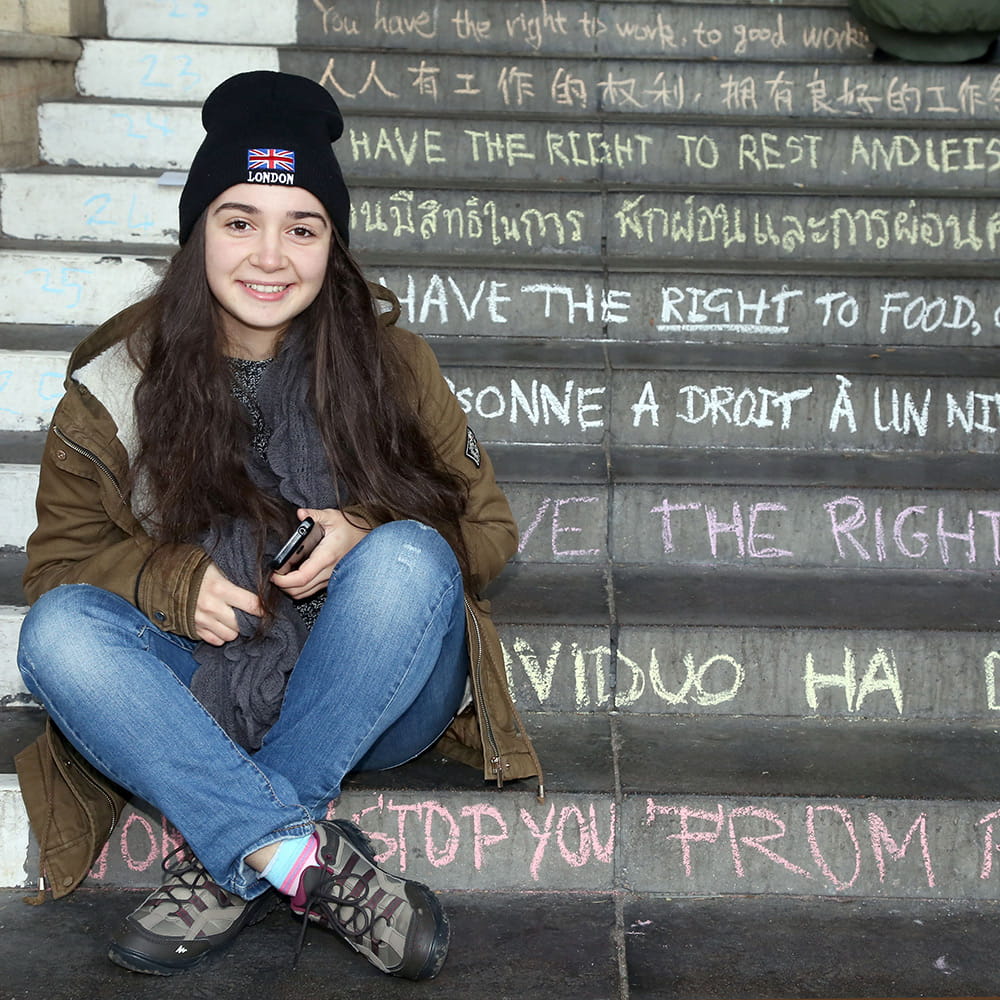 You have the right to work, to good
22
人人有工作的权利，拥有良好的工作
23
HAVE THE RIGHT TO REST AND LEIS
24
มีสิทธิในการ พักผ่อนและการผ่อน
24
HAVE THE RIGHT TO FOOD,
25
SONNE A DROIT À UN NI
VE THE RIGHT
VIDUO HA
STOP YOU FROM
LONDON